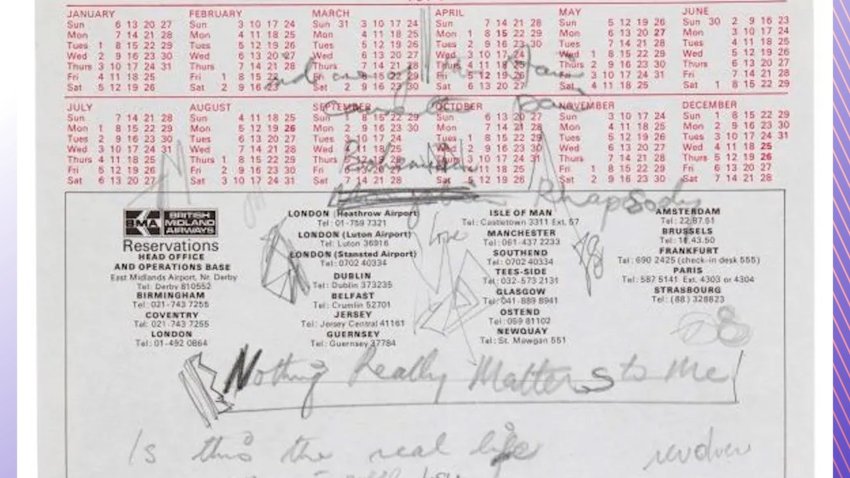 JANUARY FEBRUARY MARCH APRIL MAY JUNE
Sun 6 13 20 27 Sun 3 10 17 24 Sun 31 3 10 17 24 Sun 7 14 21 28 Sun 5 12 19 26 Sun 30 2 9 16 23
Mon 7 14 21 28 Mon 4 11 18 25 Mon 4 11 18 25 Mon 1 8 15 22 29 Mon 6 13 20 27 Mon 3 10 17 24
Tues 1 8 15 22 29 Tues 5 12 19 26 Tues 5 12 19 26 Tues 2 9 16 23 30 Tues 7 14 21 28 Tues 4 11 18 25
Wed 2 9 16 23 30 Wed 6 13 20 27 Wed 6 13 20 27 Wed 3 10 17 24 Wed 1 8 15 22 29 Wed 5 12 19 26
Thurs 3 10 17 24 31 Thurs 7 14 21 28 Thurs 7 14 21 28 Thurs 4 11 18 25 Thurs 2 9 16 23 30 Thurs 6 13 20 27
Fri 4 11 18 25 Fri 1 8 15 22 Fri 1 8 15 22 29 Fri 5 12 19 26 Fri 3 10 17 24 31 Fri 7 14 21 28
Sat 5 12 19 26 Sat 2 9 16 23 Sat 2 9 16 23 30 Sat 6 13 20 27 Sat 4 11 18 25 Sat 1 8 15 22 29
JULY AUGUST SEPTEMBER OCTOBER NOVEMBER DECEMBER
Sun 7 14 21 28 Sun 4 11 18 25 Sun 1 8 15 22 29 Sun 6 13 20 27 Sun 3 10 17 24 Sun 1 8 15 22 29
Mon 1 8 15 22 29 Mon 5 12 19 26 Mon 2 9 16 23 30 Mon 7 14 21 28 Mon 4 11 18 25 Mon 2 9 16 23 30
Tues 2 9 16 23 30 Tues 6 13 20 27 Tues 3 10 17 24 Tues 1 8 15 22 29 Tues 5 12 19 26 Tues 3 10 17 24 31
Wed 3 10 17 24 31 Wed 7 14 21 28 Wed 4 11 18 25 Wed 2 9 16 23 30 Wed 6 13 20 27 Wed 4 11 18 25
Thurs 4 11 18 25 Thurs 1 8 15 22 29 Thurs 5 12 19 26 Thurs 3 10 17 24 31 Thurs 7 14 21 28 Thurs 5 12 19 26
Fri 5 12 19 26 Fri 2 9 16 23 30 Fri 6 13 20 27 Fri 4 11 18 25 Fri 1 8 15 22 29 Fri 6 13 20 27
Sat 6 13 20 27 Sat 3 10 17 24 31 Sat 7 14 21 28 Sat 5 12 19 26 Sat 2 9 16 23 30 Sat 7 14 21 28
Bohemian
Rhapsody
BMA BRITISH MIDLAND AIRWAYS
Reservations
HEAD OFFICE
AND OPERATIONS BASE
East Midlands Airport, Nr. Derby
Tel: Derby 810552
BIRMINGHAM
Tel: 021-743 7255
COVENTRY
Tel: 021-743 7255
LONDON
Tel: 01-492 0864
LONDON (Heathrow Airport)
Tel: 01-759 7321
LONDON (Luton Airport)
Tel: Luton 36916
LONDON (Stansted Airport)
Tel: 0702 40334
DUBLIN
Tel: Dublin 373235
BELFAST
Tel: Crumlin 52701
JERSEY
Tel: Jersey Central 41161
GUERNSEY
Tel: Guernsey 37784
ISLE OF MAN
Tel: Castletown 3311 Ext. 57
MANCHESTER
Tel: 061-437 2233
SOUTHEND
Tel: 0702 40334
TEES-SIDE
Tel: 032-573 2131
GLASGOW
Tel: 041-889 8941
OSTEND
Tel: 059 81102
NEWQUAY
Tel: St. Mawgan 551
AMSTERDAM
Tel: 22.87.61
BRUSSELS
Tel: 18.43.50
FRANKFURT
Tel: 690 2425 (check-in desk 555)
PARIS
Tel: 587 5141 Ext. 4303 or 4304
STRASBOURG
Tel: (88) 328823
Nothing Really Matters to Me
Is this the real life
revolver